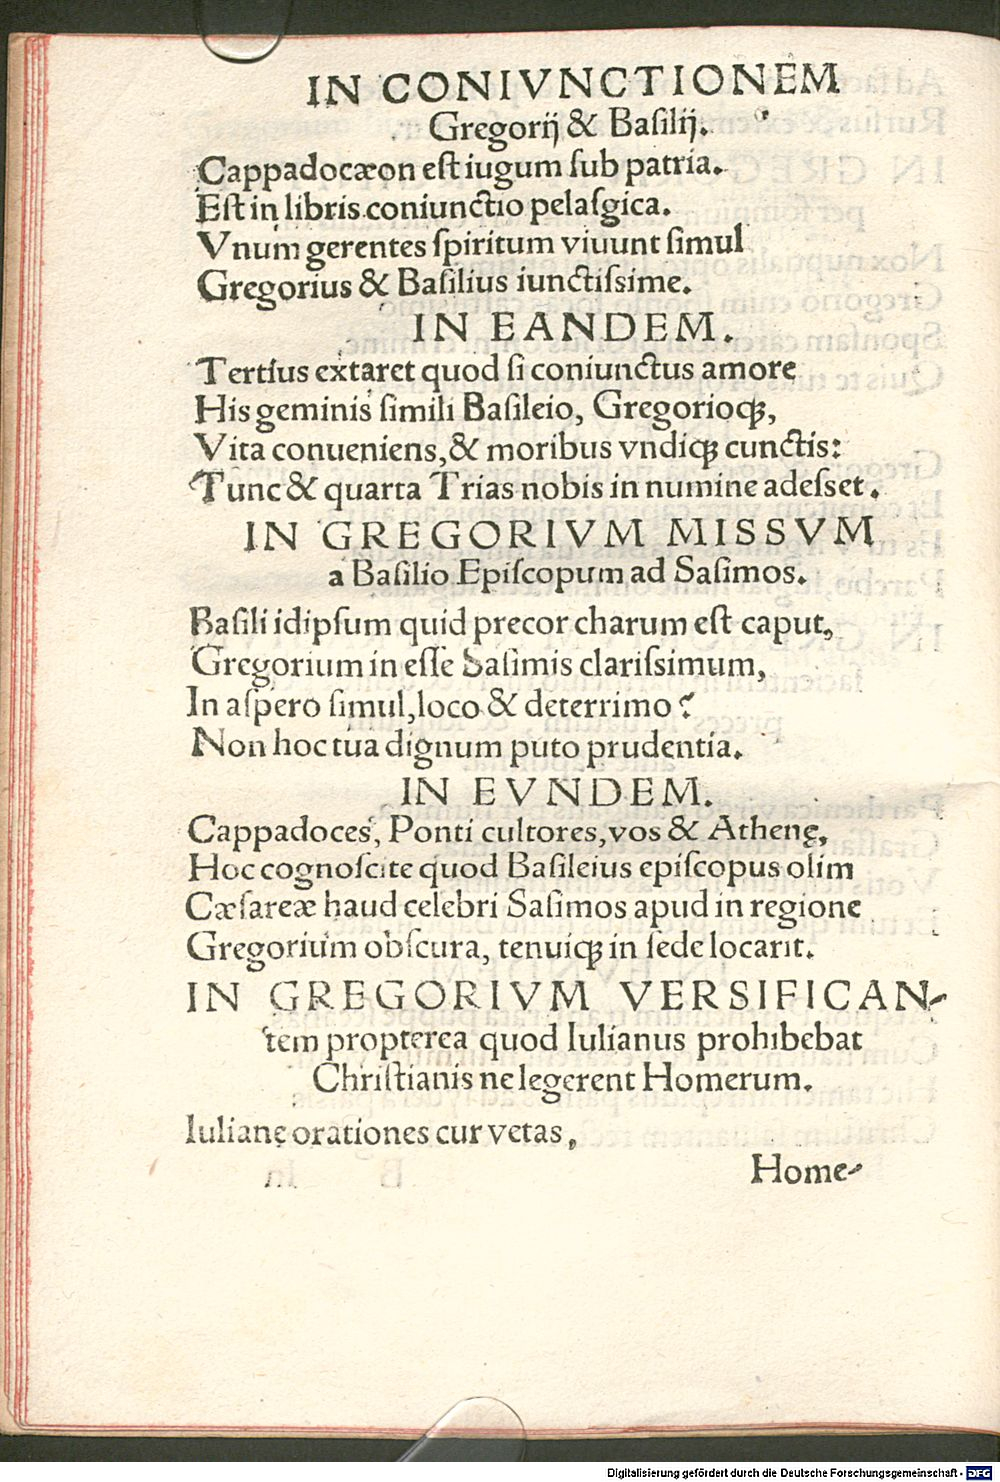 IN CONIVNCTIONEM
Gregorij & Basilij.
Cappadocæon est iugum sub patria.
Est in libris coniunctio pelasgica.
Vnum gerentes spiritum viuunt simul
Gregorius & Basilius iunctissime.
IN EANDEM.
Tertius extaret quod si coniunctus amore
His geminis simili Basileio, Gregorioqꝫ,
Vita conueniens, & moribus vndiqꝫ cunctis:
Tunc & quarta Trias nobis in numine adesset.
IN GREGORIVM MISSVM
a Basilio Episcopum ad Sasimos.
Basili idipsum quid precor charum est caput,
Gregorium in esse Sasimis clarissimum,
In aspero simul, loco & deterrimo?
Non hoc tua dignum puto prudentia.
IN EVNDEM.
Cappadoces, Ponti cultores, vos & Athenę,
Hoc cognoscite quod Basileius episcopus olim
Cæsareæ haud celebri Sasimos apud in regione
Gregorium obscura, tenuiqꝫ in sede locarit.
IN GREGORIVM VERSIFICAN-
tem propterea quod Iulianus prohibebat
Christianis ne legerent Homerum.
Iuliane orationes cur vetas,
Home-
Digitalisierung gefördert durch die Deutsche Forschungsgemeinschaft - DFG